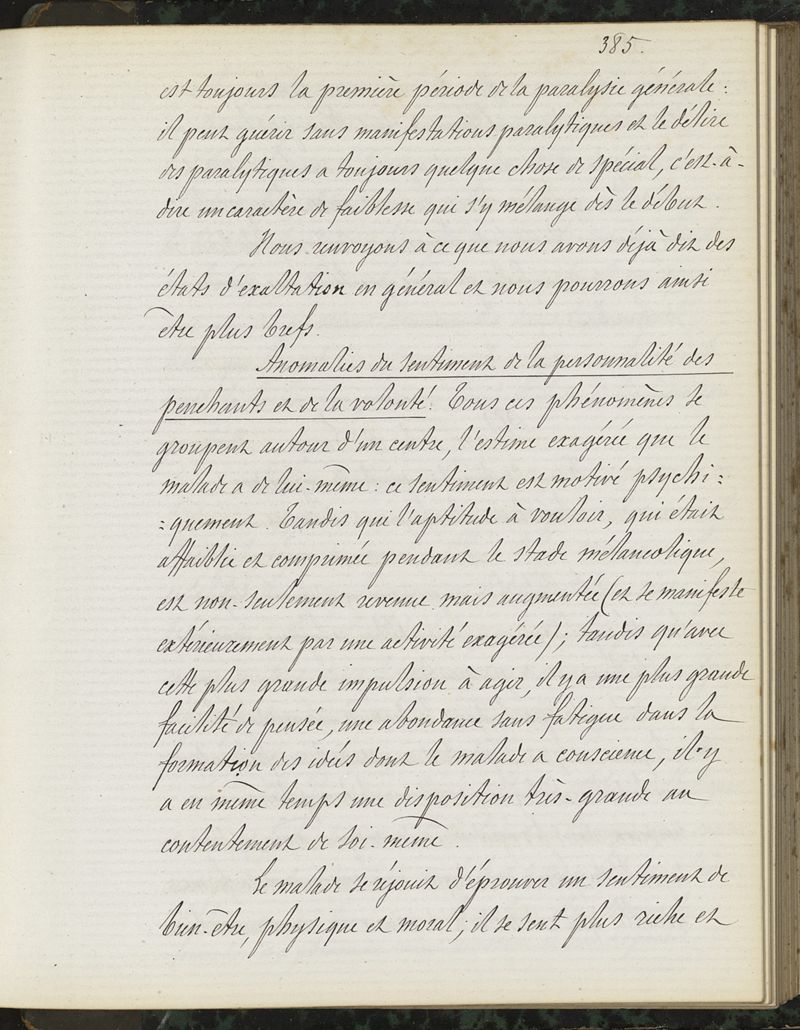 385.
est toujours la première période de la paralysie générale :
il peut guérir sans manifestations paralytiques et le délire
des paralytiques a toujours quelque chose de spécial, c'est-à-
dire un caractère de faiblesse qui s'y mélange dès le début.
Nous renvoyons à ce que nous avons déjà dit des
états d'exaltation en général et nous pourrons ainsi
être plus brefs.
Anomalies du sentiment de la personnalité des
penchants et de la volonté. Tous ces phénomènes se
groupent autour d'un centre, l'estime exagérée que le
malade a de lui-même : ce sentiment est motivé psychi=
=quement. Tandis qui l'aptitude à vouloir, qui était
affaiblie et comprimée pendant le stade mélancolique,
est non-seulement revenue mais augmentée (et se manifeste
extérieurement par une activité exagérée) ; tandis qu'avec
cette plus grande impulsion à agir, il y a une plus grande
facilité de pensée, une abondance sans fatigue dans la
formation des idées dont le malade a conscience, il y
a en même temps une disposition très-grande au
contentement de soi-même.
Le malade se réjouit d'éprouver un sentiment de
bien-être, physique et moral ; il se sent plus riche et